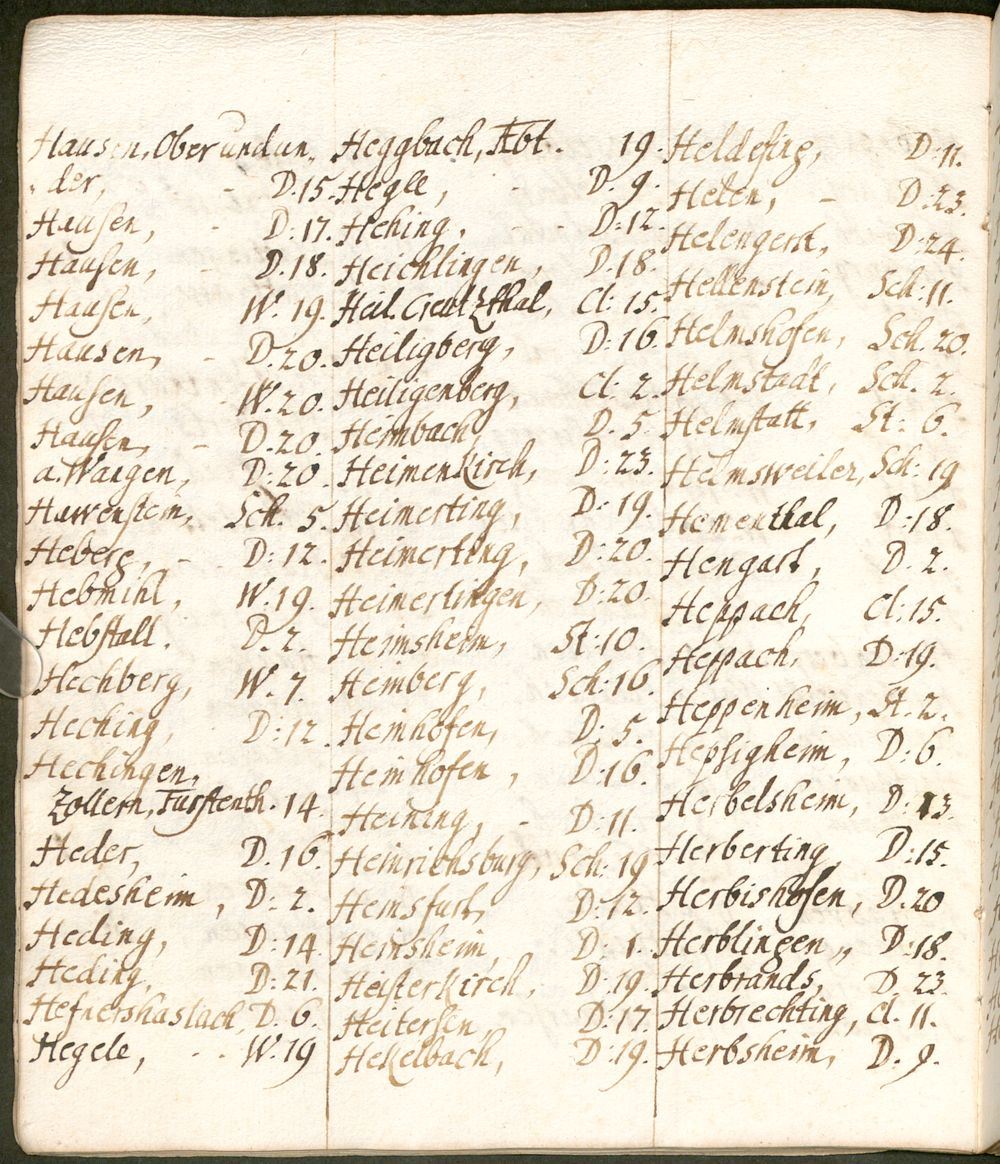 Hausen, Ober und un„
„der, - D.15.
Hausen, - D:17.
Hausen, - D.18.
Hausen, W. 19.
Hausen, - D.20.
Hausen, - W.20.
Hausen, - D.20.
a. Wangen, D:20.
Hauvenstein, Sch. 5.
Heberg, - - D: 12.
Hebmihl, W.19.
Hebstall. D. 2.
Hechberg, W. 7.
Heching, D: 12.
Hechingen,
Zollern, Furstenth. 14.
Heder, D. 16.
Hedesheim, D: 2.
Heding, D: 14.
Heding, D: 21.
Hefnershaslach, D. 6.
Hegele, - - W.19
Heggbach, Abt. 19.
Hegle, - D. 9.
Hehing, - D: 12.
Heichlingen, D.18.
Heil. Creutzthal, Cl: 15.
Heiligberg, D: 16.
Heiligenberg, Cl: 2.
Heimbach, D. 5.
Heimenkirch, D: 23.
Heimerting, D: 19.
Heimerting, D: 20.
Heimertingen, D: 20.
Heimsheim, St: 10.
Heinberg, Sch: 16.
Heinhofen, D: 5.
Heinhofen, D: 16.
Heining, - D: 11.
Heinrichsburg, Sch: 19
Heinsfurt, D: 12.
Heinsheim, D: 1.
Heisterkirch, D: 19.
Heitersen, D: 17.
Hekelbach, D: 19.
Heldefing, D: 11.
Helen, - D: 23.
Helengerst, D: 24.
Hellenstein, Sch: 11.
Helmshofen, Sch. 20.
Helmstadt, Sch. 2.
Helmstatt, St: 6.
Helmsweiler, Sch: 19
Hementhal, D: 18.
Hengart, D. 2.
Heppach, Cl: 15.
Heppach, D: 19.
Heppenheim, St. 2.
Hepsigheim, D: 6.
Herbelsheim, D: 13.
Herberting, D: 15.
Herbishofen, D. 20
Herblingen„ D: 18.
Herbrands, D. 23.
Herbrechting, Cl. 11.
Herbsheim, D. 9.